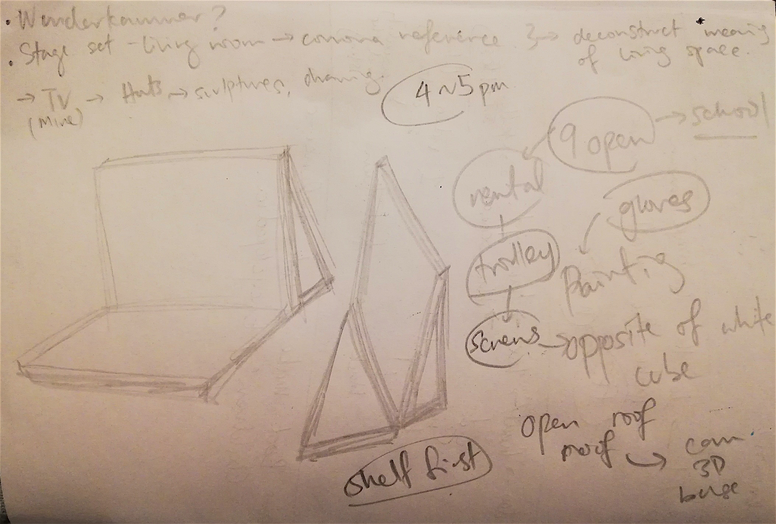 • Wunderkammer?
• Stage set - living room → corona reference → deconstruct meaning
of living space.
→ TV → Huts → sculptures, drawing.
(mine)
4~5pm
9 open → school
rental
gloves
trolley
Paintig
screws → opposite of white
cube
open roof
roof → com
3D
shelf first